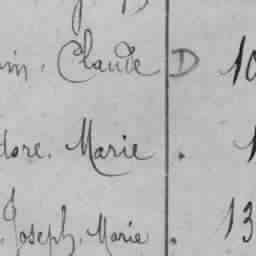 in. Claude D 10
dore. Marie . 1
. Joseph, Marie . 13